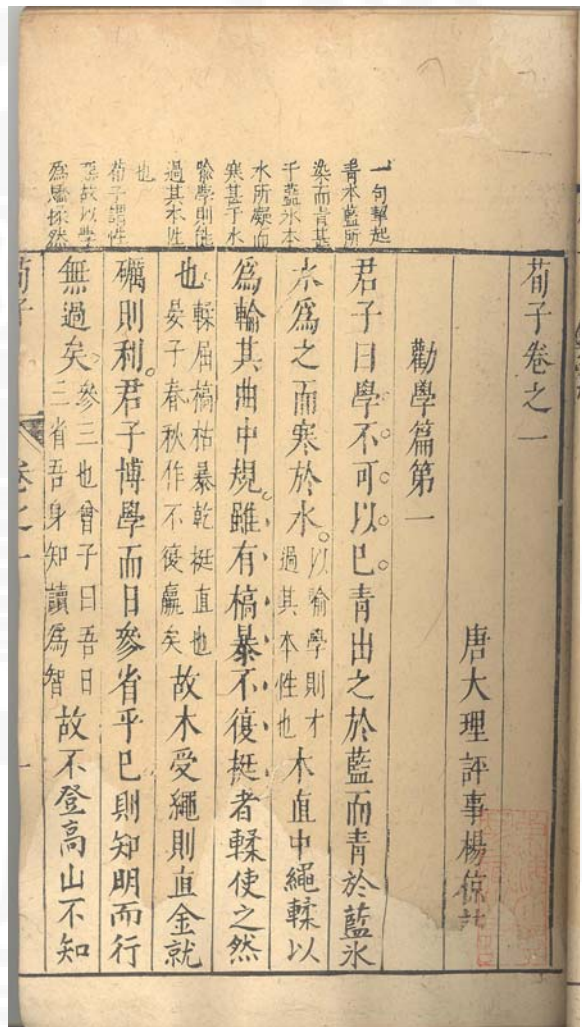 一句挈起
青本藍所
染而青甚
于藍氷本
水所凝而
寒甚于水
喻學則能
過其本性
也
荀子謂性
惡故以學
為矯揉然
荀子卷之一
唐大理評事楊倞註
勸學篇第一
君子曰學不可以已青出之於藍而青於藍氷
水爲之而寒於水。以喻學則才過其本性也木直中繩輮以
爲輪其曲中規。雖有槁暴不復挺者輮使之然
也輮屈槁枯暴乾挺直也晏子春秋作不復贏矣故木受繩則直金就
礪則利。君子博學而日參省乎已則知明而行
無過矣。參三也曾子曰吾日三省吾身知讀爲智故不登高山不知
荀子 卷之一